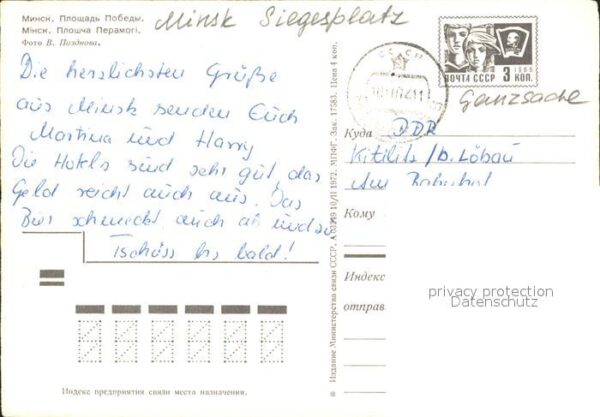 Минск. Площадь Победы.
Мінск. Плошча Перамогі.
Фото В. Позднова.
Minsk Siegesplatz
Die herzlichsten Grüße
aus Minsk senden Euch
Martina und Harry
Die Hotels sind sehr gut, das
Geld reicht auch aus. Das
Bier schmeckt auch ab und zu
Tschüss bis bald!
Индекс предприятия связи места назначения.
Издание Министерства связи СССР. 10/II 1972. МПФГ. Зак. 17583. Цена 4 коп.
СССР
ПОЧТА СССР 3 КОП.
Ganzsache
Куда DDR
Kittlitz / b. Löbau
Am Bahnhof
Кому
Индекс
отправ
privacy protection
Datenschutz